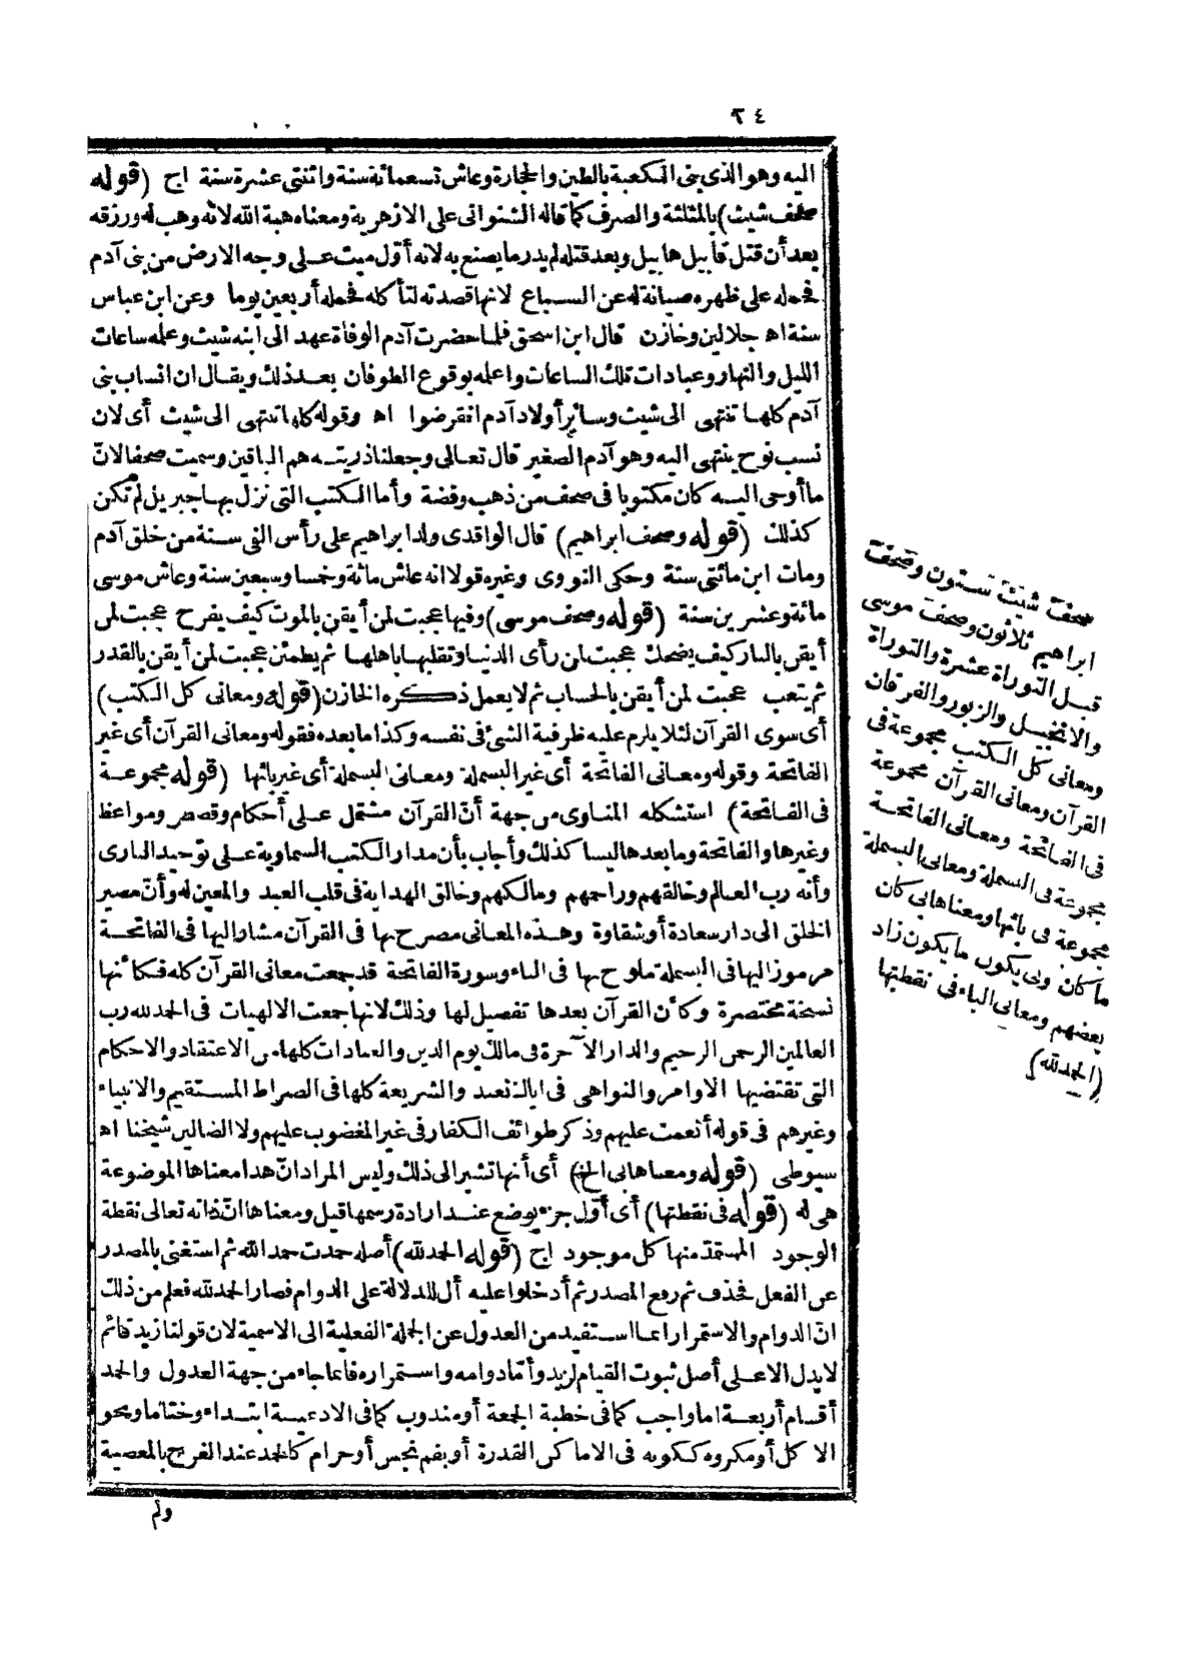 ٢٤
اليه وهو الذى بنى الكعبة بالطين والحجارة وعاش تسعمائة سنة واثنتى عشرة سنة اج (قوله
صحف شيث) بالمثلثة والصرف كما قاله الشنوانى على الازهرية ومعناه هبة الله لانه وهب له ورزقه
بعد أن قتل قابيل هابيل وبعد قتله لم يدر ما يصنع به لانه أوّل ميت على وجه الارض من بنى آدم
فحمله على ظهره صيانة له عن السباع لانها قصدته لتأكله فحمله أربعين يوما وعن ابن عباس
سنة اه جلالين وخازن قال ابن اسحق فلما حضرت آدم الوفاة عهد الى ابنه شيث وعلمه ساعات
الليل والنهار وعبادات تلك الساعات واعلمه بوقوع الطوفان بعد ذلك ويقال ان انساب بنى
آدم كلها تنتهى الى شيث وسائر أولاد آدم انقرضوا اه وقوله كلها تنتهى الى شيث أى لان
نسب نوح ينتهى اليه وهو آدم الصغير قال تعالى وجعلنا ذريته هم الباقين وسميت صحفا لانّ
ما أوحى اليه كان مكتوبا فى صحف من ذهب وفضة وأما الكتب التى نزل بها جبريل لم تكن
كذلك (قوله وصحف ابراهيم) قال الواقدى ولد ابراهيم على رأس الفى سنة من خلق آدم
ومات ابن مائتى سنة وحكى النووى وغيره قولا انه عاش مائة وخمسا وسبعين سنة وعاش موسى
مائة وعشرين سنة (قوله وصحف موسى) وفيها عجبت لمن أيقن بالموت كيف يفرح عجبت لمن
أيقن بالنار كيف يضحك عجبت لمن رأى الدنيا وتقلبها باهلها ثم يطمئن عجبت لمن أيقن بالقدر
ثم يتعب عجبت لمن أيقن بالحساب ثم لا يعمل ذكره الخازن (قوله ومعانى كل الكتب)
أى سوى القرآن لئلا يلزم عليه ظرفية الشئ فى نفسه وكذا ما بعده فقوله ومعانى القرآن أى غير
الفاتحة وقوله ومعانى الفاتحة أى غير البسملة ومعانى البسملة أى غير بائها (قوله مجموعة
فى الفاتحة) استشكله المناوى من جهة أنّ القرآن مشتمل على أحكام وقصص ومواعظ
وغيرها والفاتحة وما بعدها ليسا كذلك وأجاب بأن مدار الكتب السماوية على توحيد البارى
وأنه رب العالم وخالقهم وراحمهم ومالكهم وخالق الهداية فى قلب العبد والمعين له وأنّ مصير
الخلق الى دار سعادة أو شقاوة وهذه المعانى مصرح بها فى القرآن مشار اليها فى الفاتحة
مرموز اليها فى البسملة ملوح بها فى الباء وسورة الفاتحة قد جمعت معانى القرآن كله فكأنها
نسخة مختصرة وكأن القرآن بعدها تفصيل لها وذلك لانها جمعت الالهيات فى الحمد لله رب
العالمين الرحمن الرحيم والدار الآخرة فى مالك يوم الدين والعبادات كلها من الاعتقاد والاحكام
التى تقتضيها الاوامر والنواهى فى اياك نعبد والشريعة كلها فى الصراط المستقيم والانبياء
وغيرهم فى قوله أنعمت عليهم وذكر طوائف الكفار فى غير المغضوب عليهم ولا الضالين شيخنا اه
سيوطى (قوله ومعناها بى الخ) أى أنها تشير الى ذلك وليس المراد انّ هذا معناها الموضوعة
هى له (قوله فى نقطتها) أى أوّل جزء يوضع عند ارادة رسمها قيل ومعناها انّ ذاته تعالى نقطة
الوجود المستمدّ منها كل موجود اج (قوله الحمد لله) أصله حمدت حمد الله ثم استغنى بالمصدر
عن الفعل فحذف ثم رفع المصدر ثم أدخلوا عليه أل للدلالة على الدوام فصار الحمد لله فعلم من ذلك
انّ الدوام والاستمرار انما استفيد من العدول عن الجملة الفعلية الى الاسمية لان قولنا زيد قائم
لا يدل الا على أصل ثبوت القيام لزيد وأمّا دوامه واستمراره فانما جاء من جهة العدول والحمد
أقسام أربعة اما واجب كما فى خطبة الجمعة أو مندوب كما فى الادعية ابتداء وختاما ونحو
الاكل أو مكروه ككونه فى الاماكن القذرة أو بفم نجس أو حرام كالحمد عند الفرح بالمعصية
ولم
صحف شيث ستون وصحف
ابراهيم ثلاثون وصحف موسى
قبل التوراة عشرة والتوراة
والانجيل والزبور والفرقان
ومعانى كل الكتب مجموعة فى
القرآن ومعانى القرآن مجموعة
فى الفاتحة ومعانى الفاتحة
مجموعة فى البسملة ومعانى البسملة
مجموعة فى بائها ومعناها بى كان
ما كان وبى يكون ما يكون زاد
بعضهم ومعانى الباء فى نقطتها
(الحمد لله)